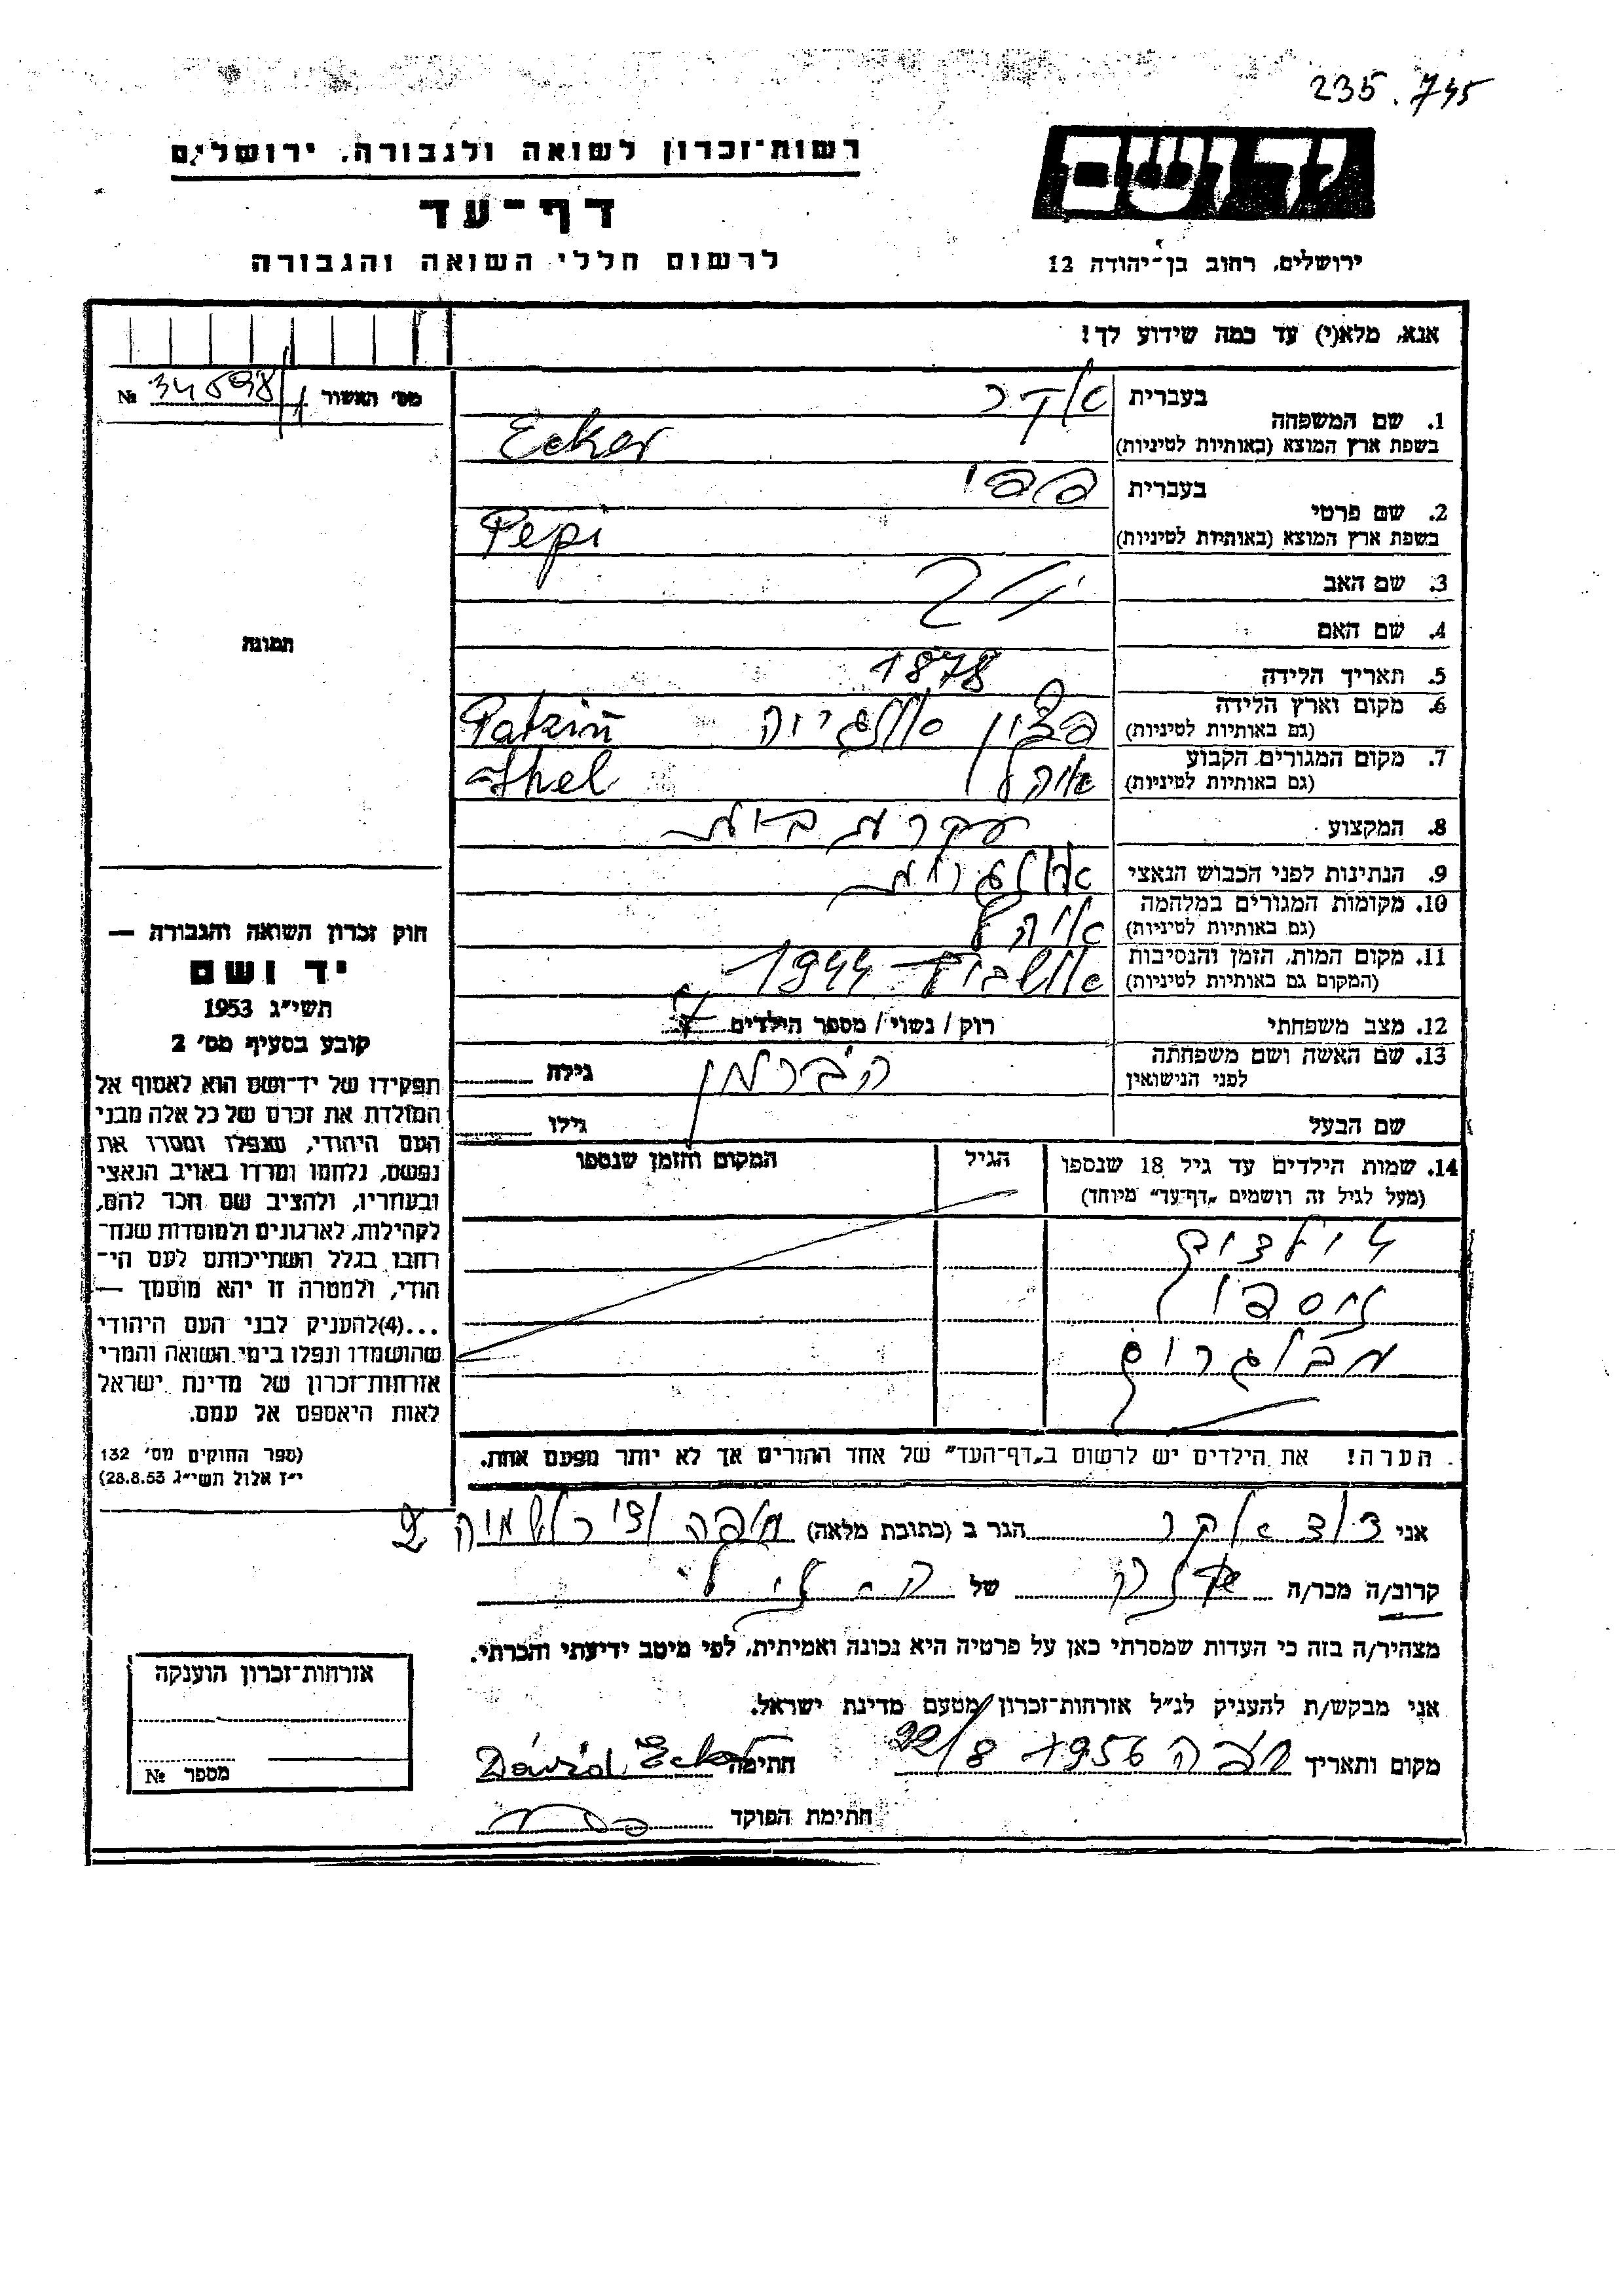 235.745
רשות־זכרון לשואה ולגבורה, ירושלים
דף־עד
לרשום חללי השואה והגבורה
יד ושם
ירושלים, רחוב בן־יהודה 12
אנא, מלא(י) עד כמה שידוע לך!
מס׳ האשור 34698/1 №
תמונה
1. שם המשפחה בעברית אקר
בשפת ארץ המוצא (באותיות לטיניות) Ecker
2. שם פרטי בעברית פפי
בשפת ארץ המוצא (באותיות לטיניות) Pepi
3. שם האב
4. שם האם
5. תאריך הלידה 1878
6. מקום וארץ הלידה
(גם באותיות לטיניות) Patzin
7. מקום המגורים הקבוע אוהל
(גם באותיות לטיניות) Ihel
8. המקצוע עקרת בית
9. הנתינות לפני הכבוש הנאצי
10. מקומות המגורים במלחמה אוהל
(גם באותיות לטיניות)
11. מקום המות, הזמן והנסיבות אושביץ 1944
(המקום גם באותיות לטיניות)
12. מצב משפחתי רוק / נשוי / מספר הילדים 7
13. שם האשה ושם משפחתה
לפני הנישואין הברמן גילה
שם הבעל גילו
14. שמות הילדים עד גיל 18 שנספו הגיל המקום והזמן שנספו
(מעל לגיל זה רושמים „דף־עד" מיוחד)
הערה! את הילדים יש לרשום ב„דף־העד" של אחד ההורים אך לא יותר מפעם אחת.
חוק זכרון השואה והגבורה —
יד ושם
תשי״ג 1953
קובע בסעיף מס׳ 2
תפקידו של יד־ושם הוא לאסוף אל
המולדת את זכרם של כל אלה מבני
העם היהודי, שנפלו ומסרו את
נפשם, נלחמו ומרדו באויב הנאצי
ובעוזריו, ולהציב שם וזכר להם,
לקהילות, לארגונים ולמוסדות שנח־
רבו בגלל השתייכותם לעם הי־
הודי, ולמטרה זו יהא מוסמך —
...(4)להעניק לבני העם היהודי
שהושמדו ונפלו בימי השואה והמרי
אזרחות־זכרון של מדינת ישראל
לאות היאספם אל עמם.
(ספר החוקים מס׳ 132
י״ז אלול תשי״ג 28.8.53)
אני דוד אקר הגר ב (כתובת מלאה) חיפה
קרוב/ה מכר/ה של
מצהיר/ה בזה כי העדות שמסרתי כאן על פרטיה היא נכונה ואמיתית, לפי מיטב ידיעתי והכרתי.
אני מבקש/ת להעניק לנ״ל אזרחות־זכרון מטעם מדינת ישראל.
מקום ותאריך חיפה 22/8 1956 חתימה Dávid Ecker
חתימת הפוקד
אזרחות־זכרון הוענקה
מספר №